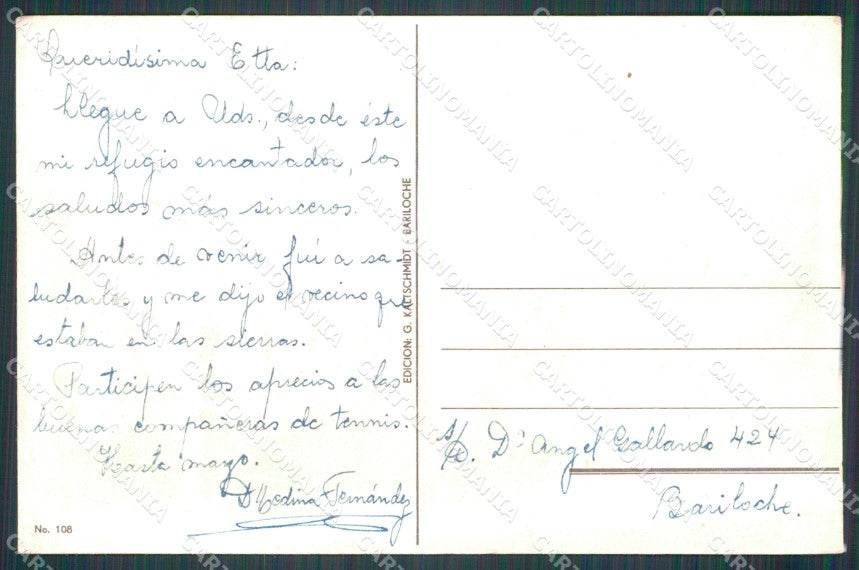 Queridísima Etta:
Llegue a Uds., desde éste
mi refugio encantador, los
saludos más sinceros.
Antes de venir fuí a sa-
ludarles y me dijo el vecino que
estaban en las sierras.
Participen los aprecios a las
buenas compañeras de tennis.
Hasta mayo.
Medina Fernández
No. 108
EDICION: G. KALTSCHMIDT - BARILOCHE
S/C. Dr. Angel Gallardo 424
Bariloche.
CARTOLINOMANIA